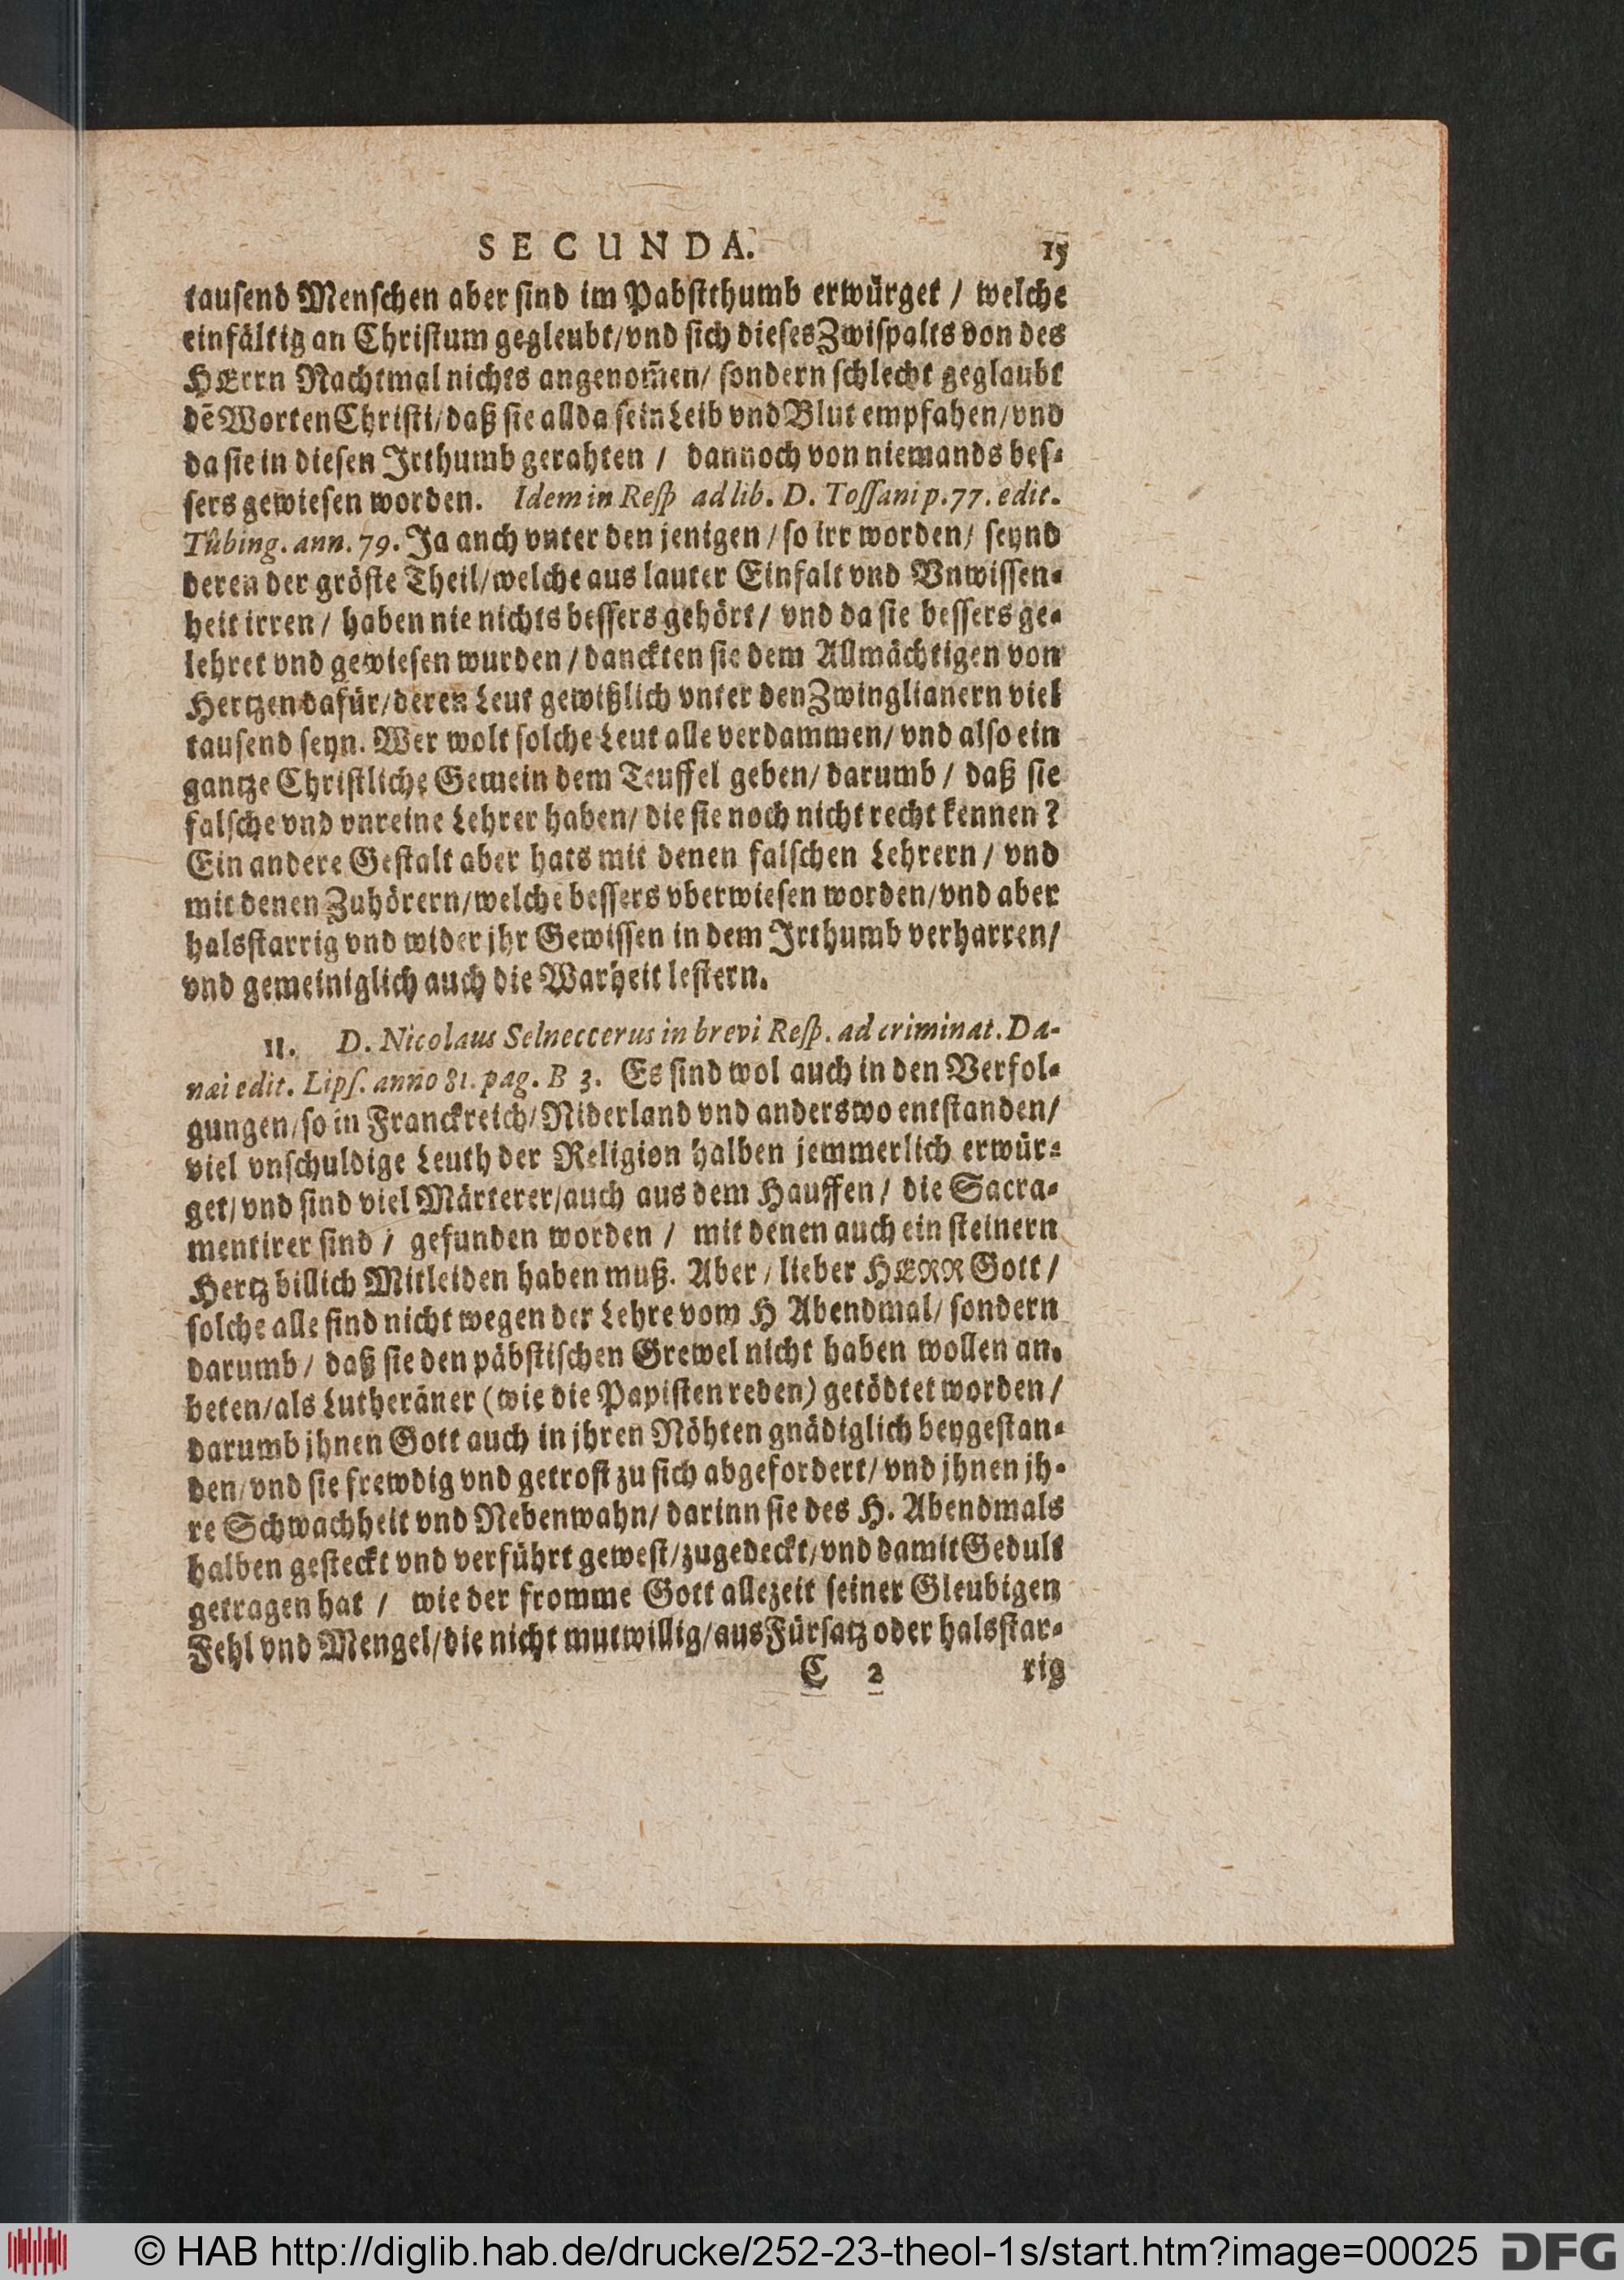 SECUNDA. 15
tausend Menschen aber sind im Pabstthumb erwürget / welche
einfältig an Christum gegleubt/vnd sich dieses Zwispalts von des
HErrn Nachtmal nichts angenom̃en/ sondern schlecht geglaubt
dẽ Worten Christi/daß sie allda sein Leib vnd Blut empfahen/vnd
da sie in diesen Irthumb gerahten / dannoch von niemands bes-
sers gewiesen worden. Idem in Resp ad lib. D. Tossani p. 77. edit.
Tübing. ann. 79. Ja anch vnter den jenigen / so irr worden/ seynd
deren der gröste Theil/welche aus lauter Einfalt vnd Vnwissen-
heit irren / haben nie nichts bessers gehört/ vnd da sie bessers ge-
lehret vnd gewiesen wurden / danckten sie dem Allmächtigen von
Hertzen dafür/deren Leut gewißlich vnter den Zwinglianern viel
tausend seyn. Wer wolt solche Leut alle verdammen/ vnd also ein
gantze Christliche Gemein dem Teuffel geben/ darumb / daß sie
falsche vnd vnreine Lehrer haben/ die sie noch nicht recht kennen?
Ein andere Gestalt aber hats mit denen falschen Lehrern / vnd
mit denen Zuhörern/welche bessers vberwiesen worden/vnd aber
halsstarrig vnd wider jhr Gewissen in dem Irthumb verharren/
vnd gemeiniglich auch die Warheit lestern.
II. D. Nicolaus Selneccerus in brevi Resp. ad criminat. Da-
nai edit. Lips. anno 81. pag. B 3. Es sind wol auch in den Verfol-
gungen/so in Franckreich/Niderland vnd anderswo entstanden/
viel vnschuldige Leuth der Religion halben jemmerlich erwür-
get/vnd sind viel Märterer/auch aus dem Hauffen/ die Sacra-
mentirer sind / gefunden worden / mit denen auch ein steinern
Hertz billich Mitleiden haben muß. Aber / lieber HERR Gott /
solche alle sind nicht wegen der Lehre vom H Abendmal/ sondern
darumb/ daß sie den päbstischen Grewel nicht haben wollen an.
beten/als Lutheräner (wie die Papisten reden) getödtet worden/
darumb jhnen Gott auch in jhren Nöhten gnädiglich beygestan-
den/vnd sie frewdig vnd getrost zu sich abgefordert/vnd jhnen jh-
re Schwachheit vnd Nebenwahn/ darinn sie des H. Abendmals
halben gesteckt vnd verführt gewest/zugedeckt/vnd damit Gedult
getragen hat / wie der fromme Gott allezeit seiner Gleubigen
Fehl vnd Mengel/die nicht mutwillig/aus Fürsatz oder halsstar-
C 2 rig
© HAB http://diglib.hab.de/drucke/252-23-theol-1s/start.htm?image=00025 DFG